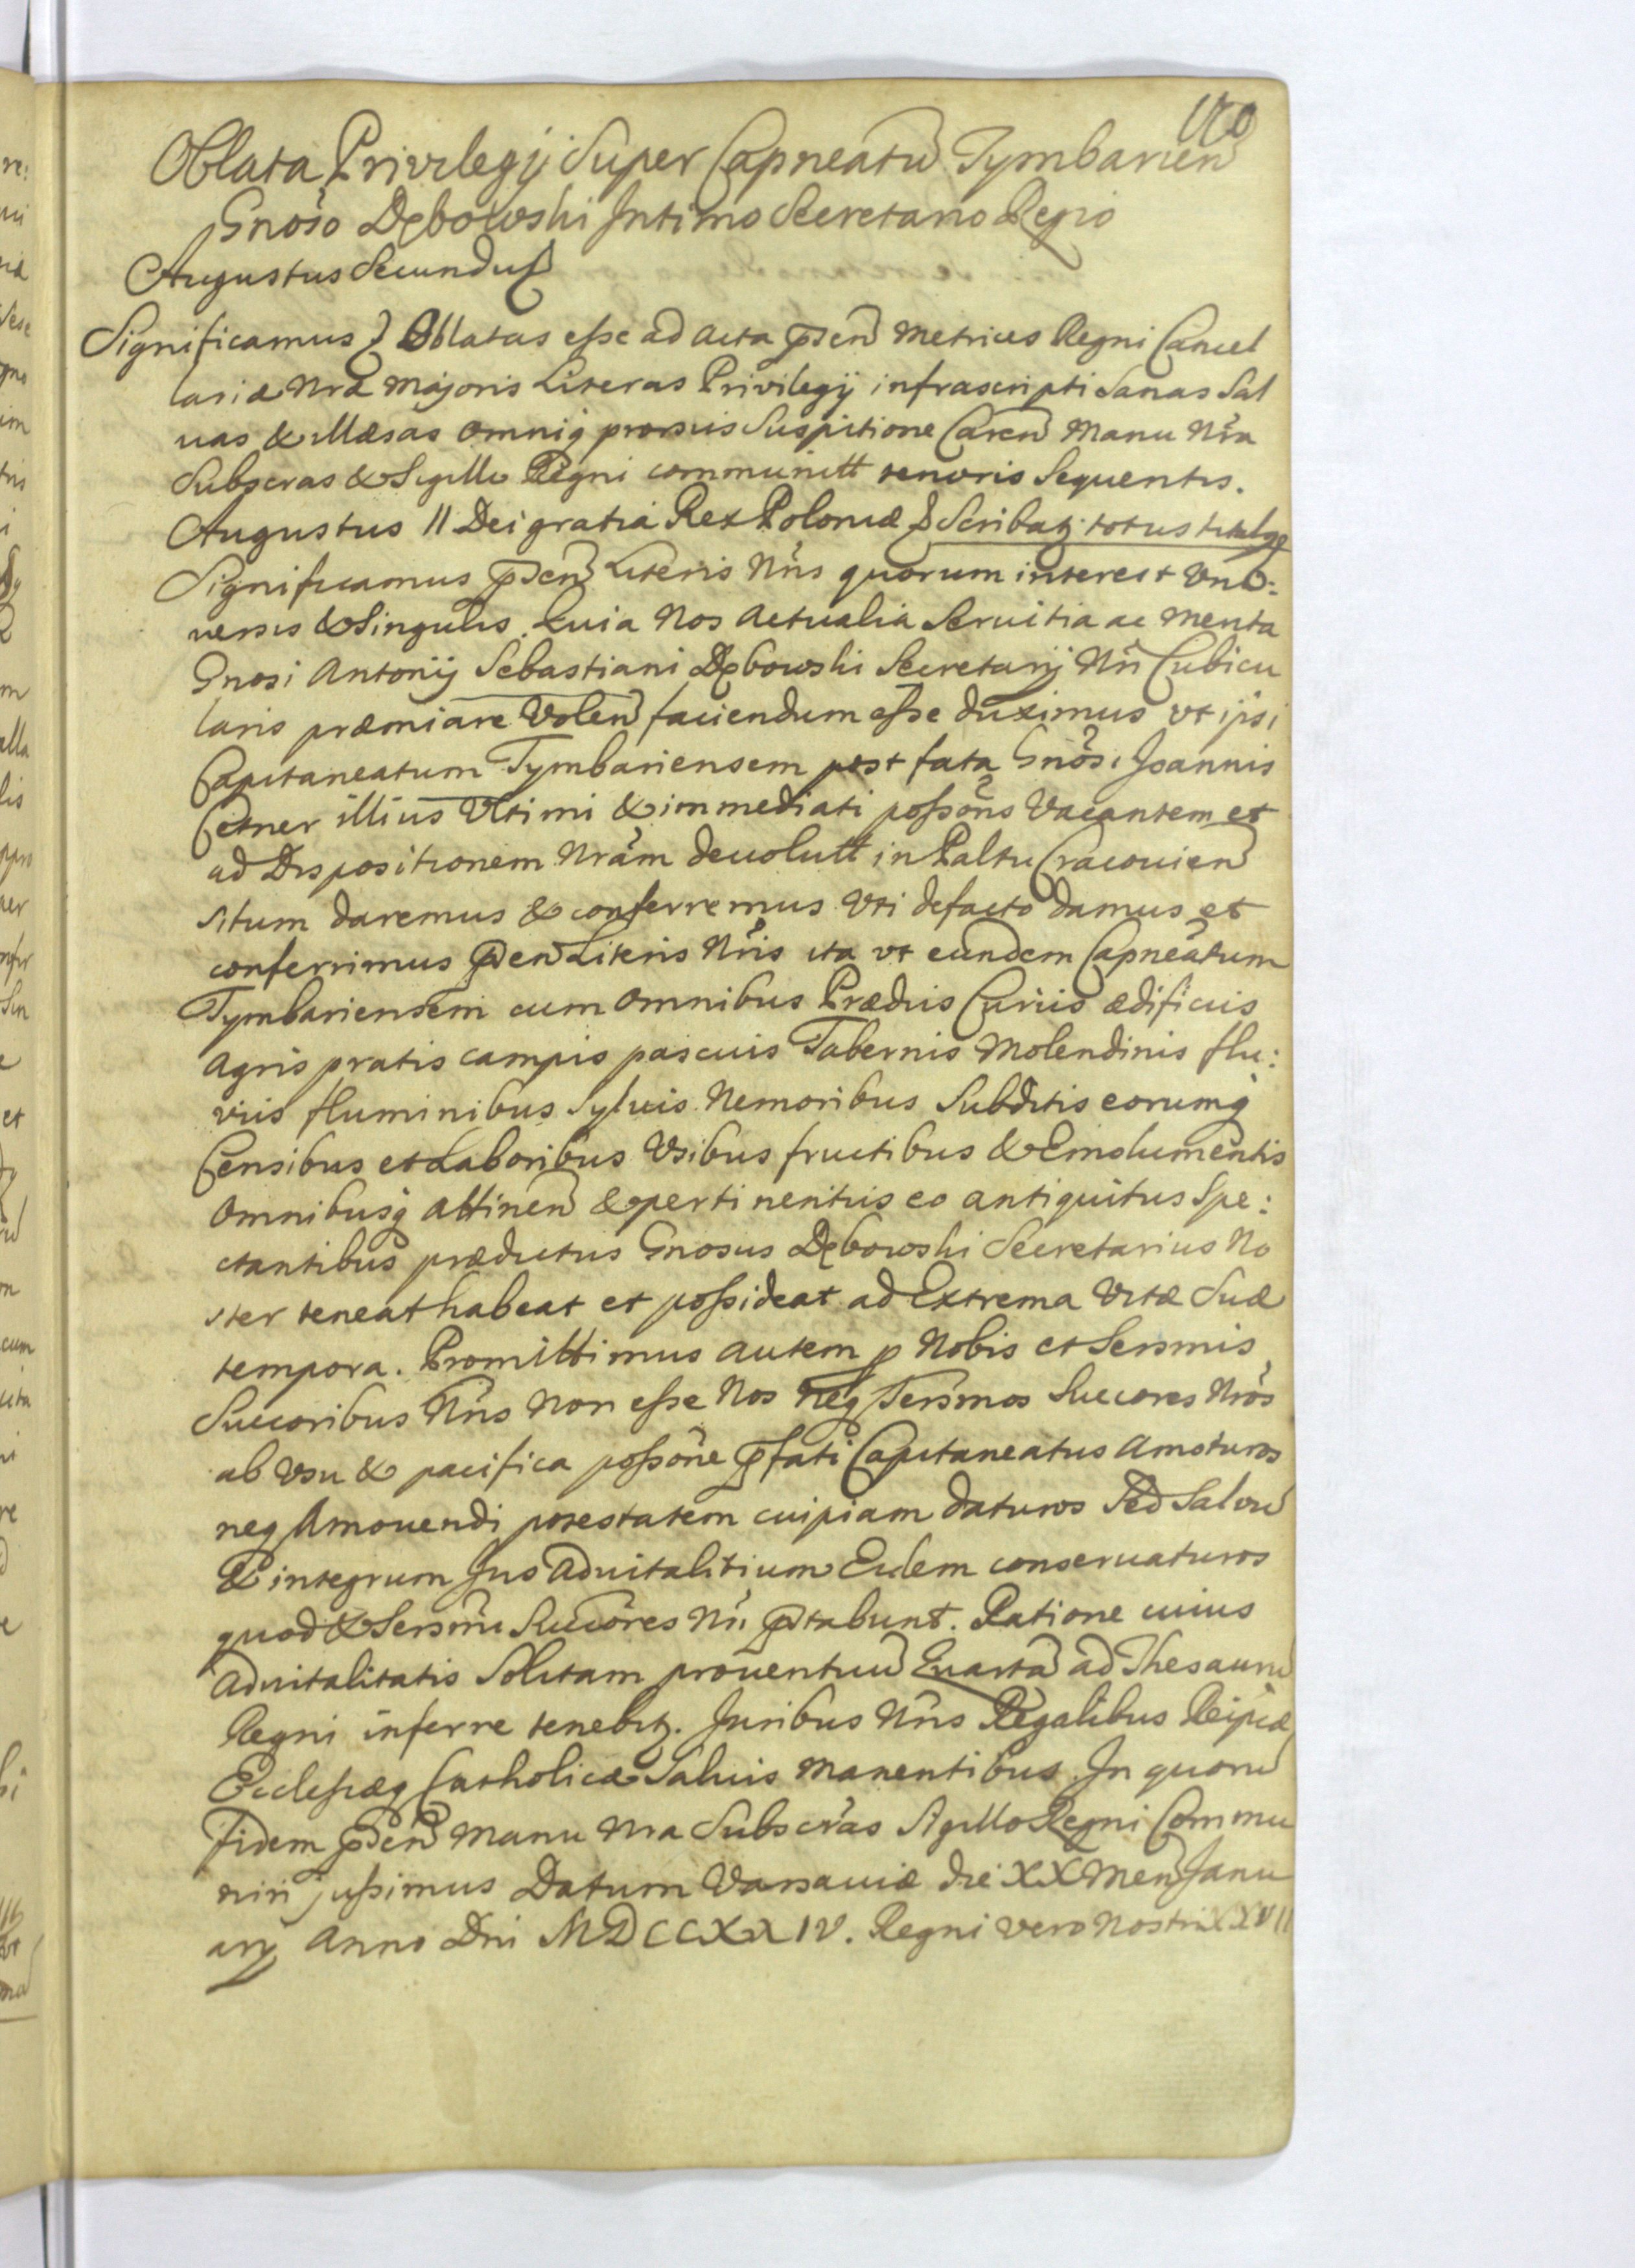 120
Oblata Privilegij Super Capneatu Tymbarien
Gnoso Dębowski Intimo Secretario Regio
Augustus Secundus
Significamus Oblatas esse ad Acta pnten Metrices Regni Cancel
lariæ Nræ Majoris Literas Privilegij infrascripti Sanas Sal
uas & illæsas omniq prorsus Suspitione Caren Manu Nra
Subscras & Sigillo Regni communitt tenoris Sequentis.
Augustus II Dei gratia Rex Poloniæ Scribatz totus titulq
Significamus pnten Literis Nris quorum interest Vni:
uersis & Singulis. Quia Nos Actualia Seruitia ac Merita
Gnosi Antonij Sebastiani Dębowski Secretarij Nri Cubicu
laris præmiare Volen faciendum esse duximus vt ipsi
Capitaneatum Tymbariensem post fata Gnosi Joannis
Cetner illius Vltimi & immediati possons Vacantem et
ad Dispositionem Nram deuolutt in Paltu Cracouien
situm daremus & conferremus Vti defacto damus et
conferrimus pnten Literis Nris ita vt eundem Capneatum
Tymbariensem cum omnibus Prædiis Curiis ædificiis
Agris pratis campis pascuis Tabernis Molendinis flu:
viis fluminibus Syluis Nemoribus Subditis eorumq
Censibus et Laboribus Vsibus fructibus & Emolumentis
Omnibusq Attinen & pertinentiis eo antiquitus Spe:
ctantibus prædictus Gnosus Dębowski Secretarius No
ster teneat habeat et possideat ad Extrema Vitæ Suæ
tempora. Promittimus autem p Nobis et Sersmis
Succoribus Nris Non esse Nos Neq Sersmos Succores Nros
ab Vsu & pacifica possone pfati Capitaneatus Amoturos
neq Amouendi potestatem cuipiam daturos Sed Saluu
& integrum Jus Aduitalitium Eidem conseruaturos
quod & Sersmi Succores Nri pstabunt. Ratione cuius
Aduitalitatis Solitam prouentuu Quarta ad Thesauru
Regni inferre tenebitz. Juribus Nris Regalibus Reipcæ
Ecclesiæq Catholicæ Saluis Manentibus In quoru
Fidem pnten Manu Nra Subscras Sigillo Regni Commu
niri jussimus Datum Varsauiæ die XX Men Janu
arij Anno Dni MDCCXXIV. Regni vero Nostri XXVII